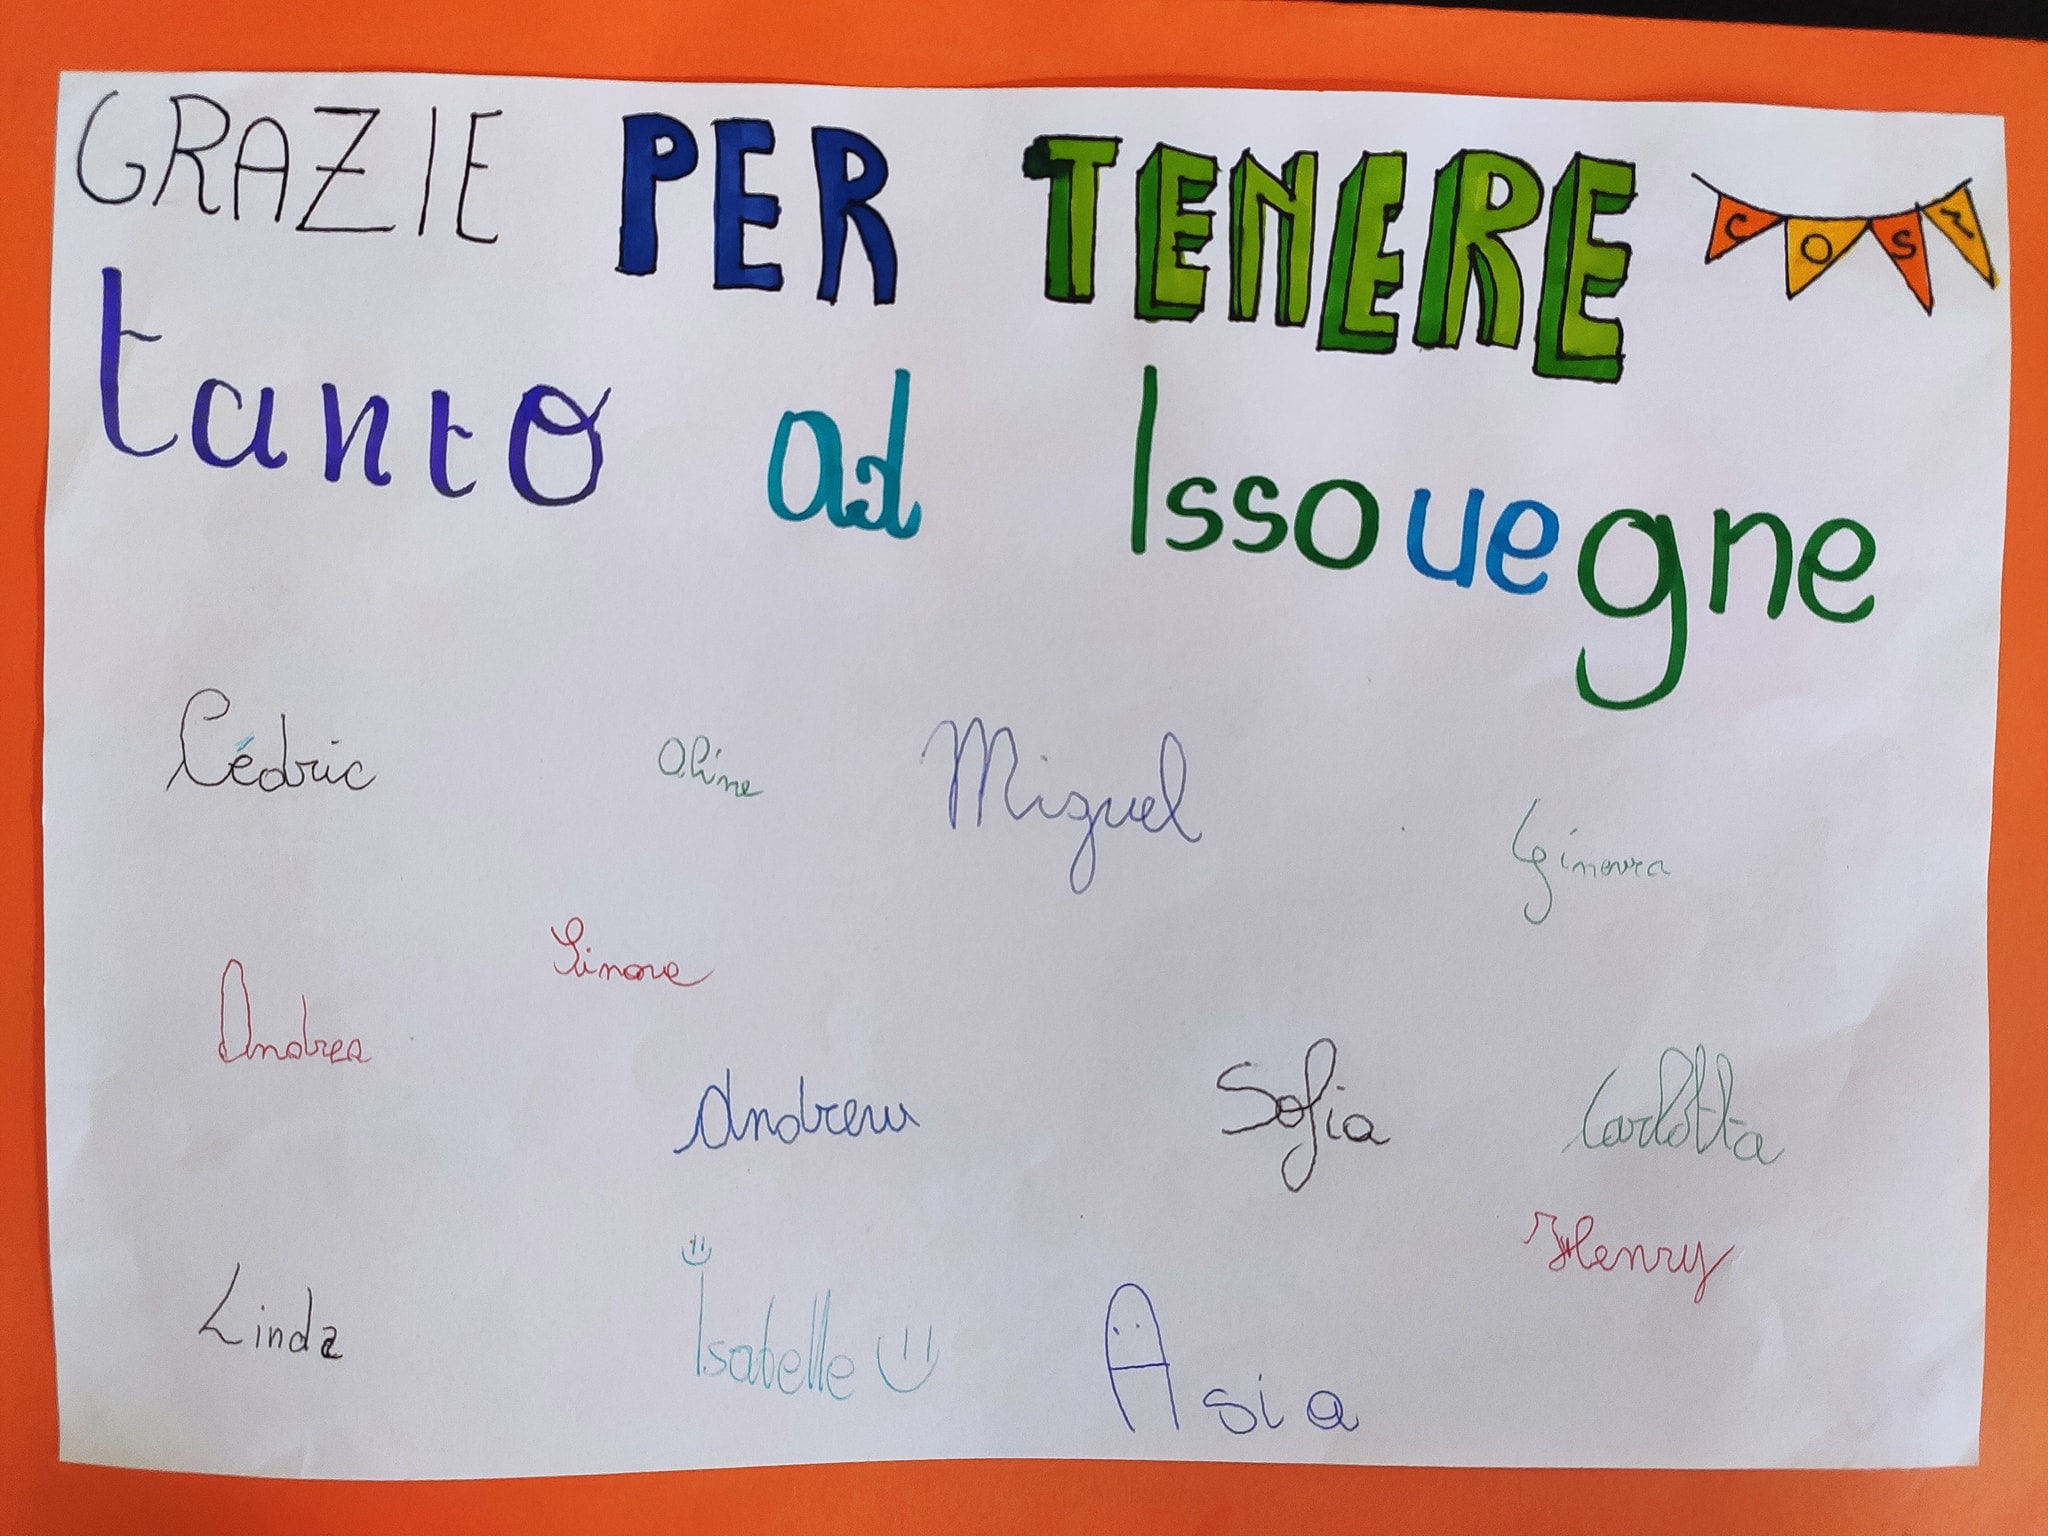 GRAZIE PER TENERE COSÌ
tanto ad Issouegne
Cédric Aline Miguel Ginevra
Simone
Andrea
Andrew Sofia Carlotta
Henry
Linda Isabelle Asia